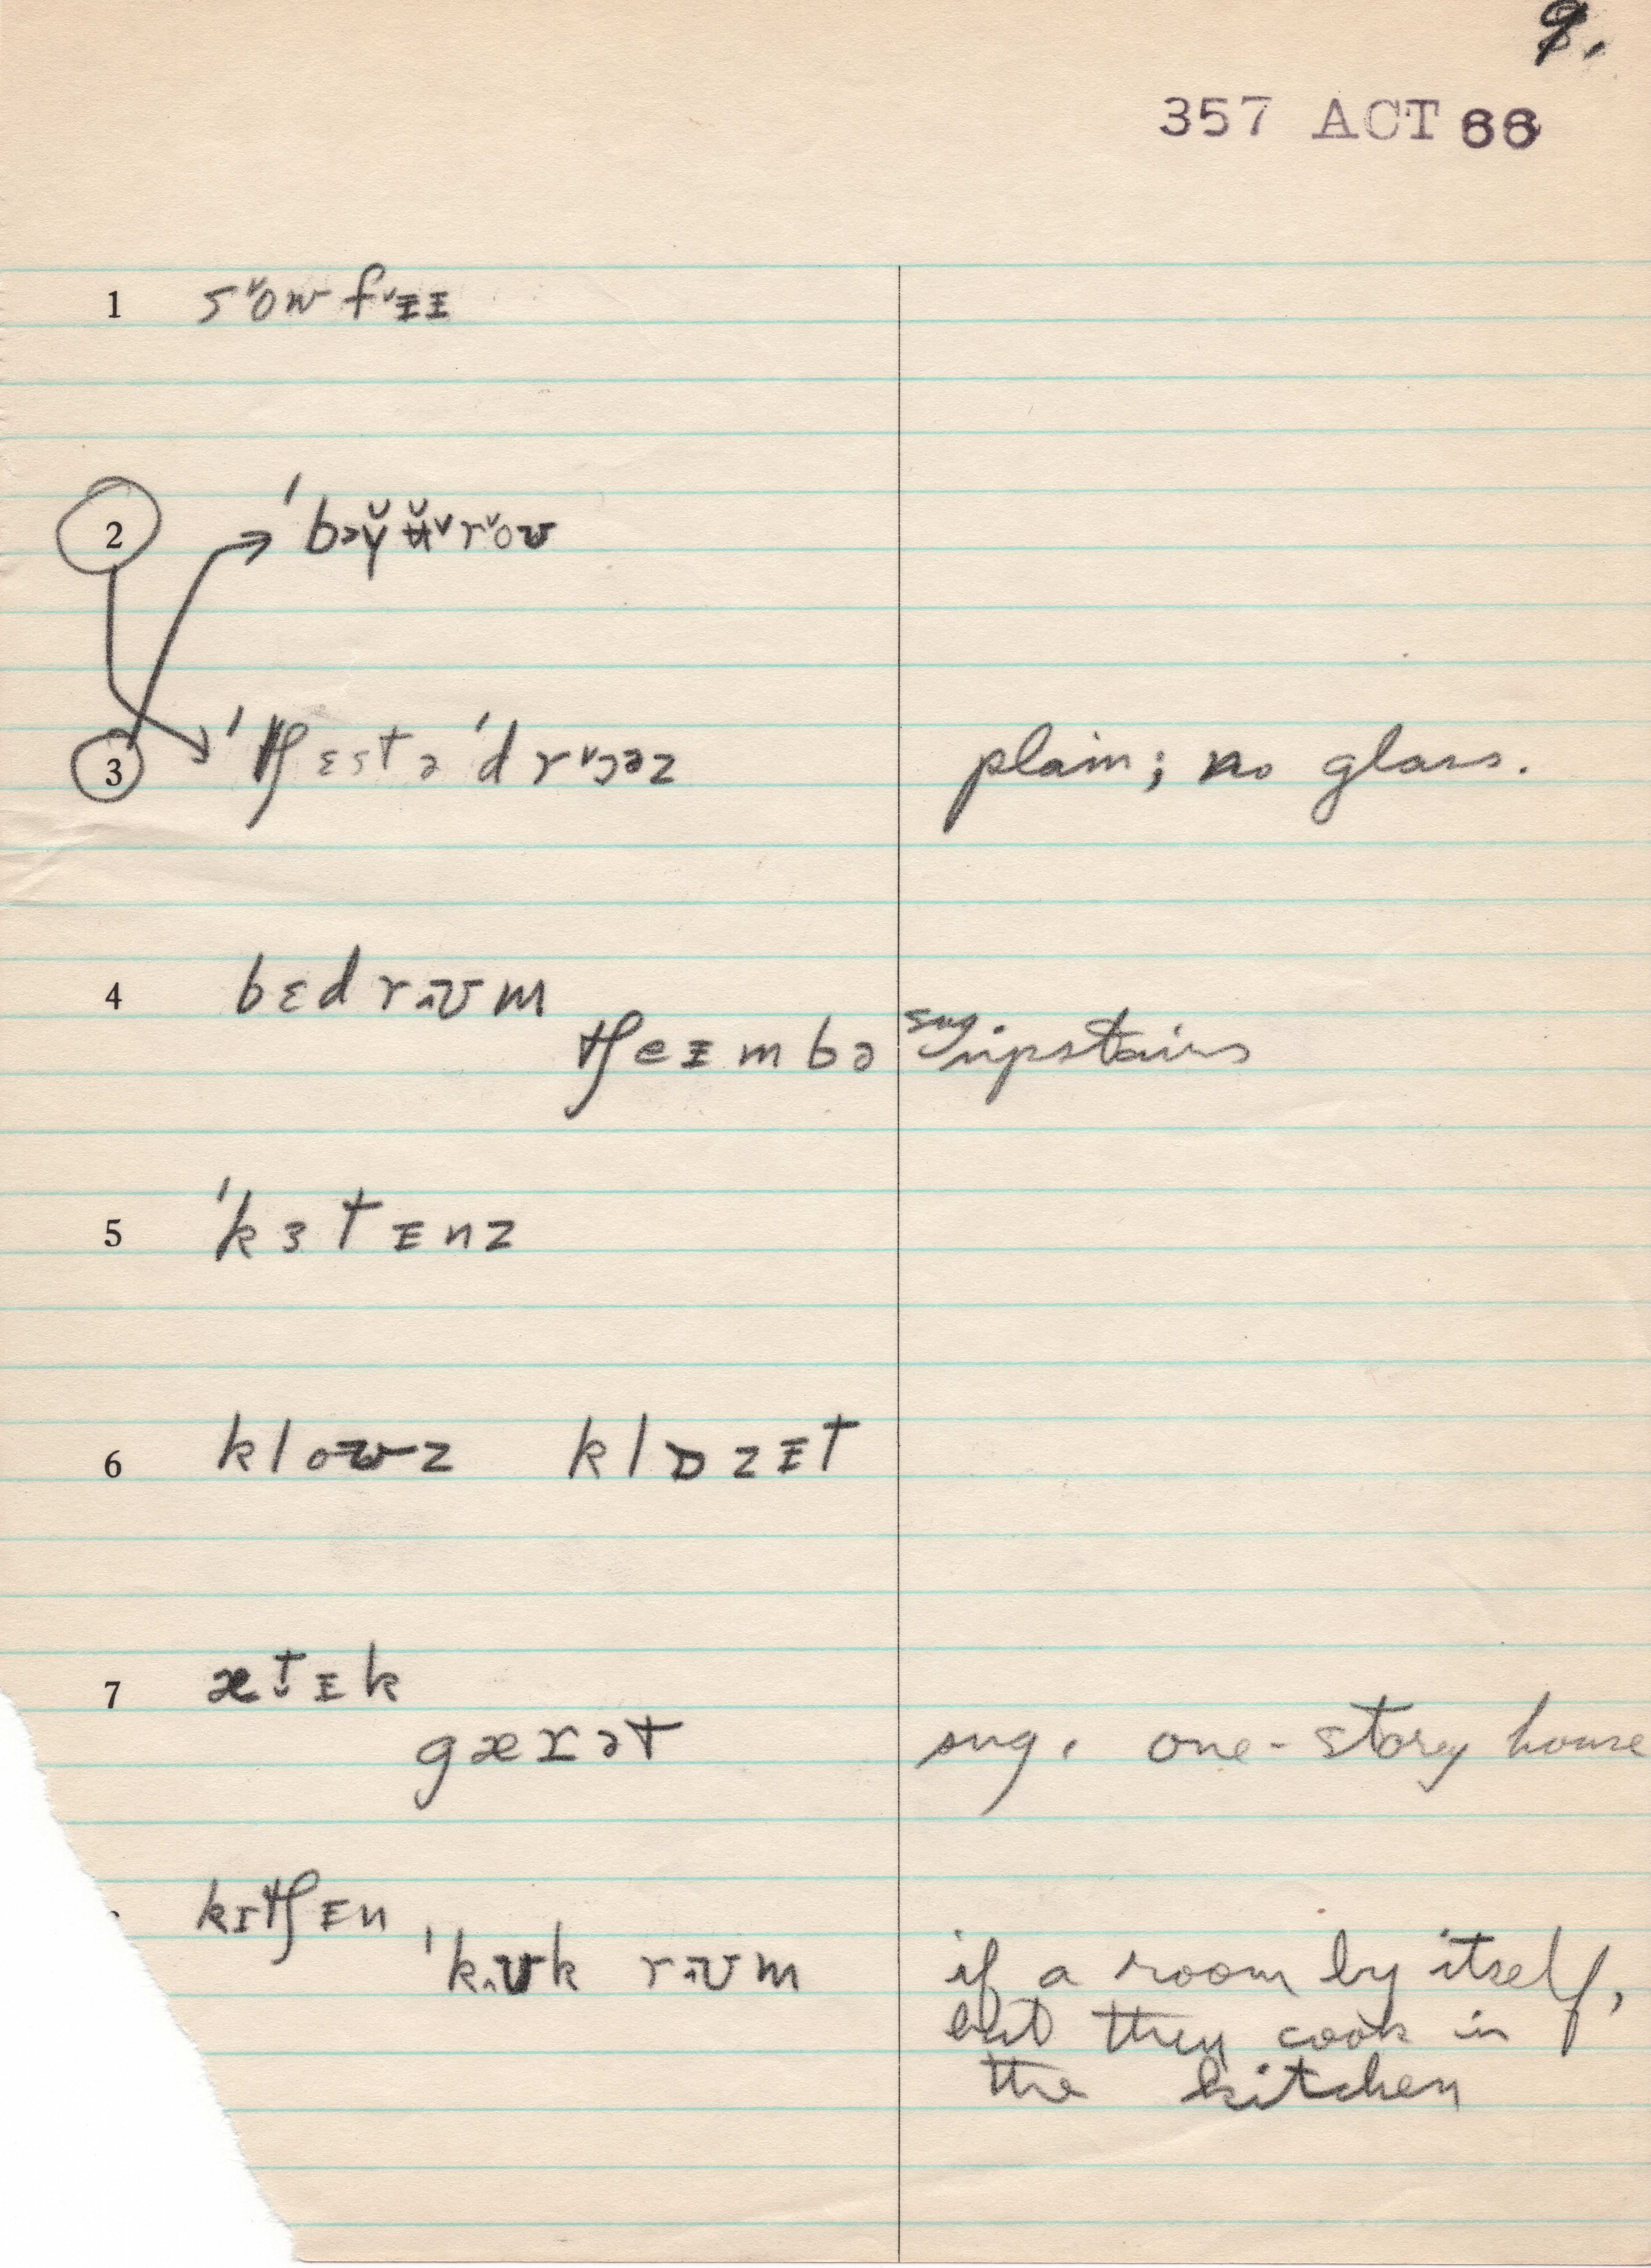 9.
357 ACT 66
1 s˅ow f˅ɪɪ
2 ˈbɔy̆ʉ̆˅r˅oʊ
3 ˈtʃɛstə ˈdr˅ɔəz plain; no glass.
4 bɛdrᴧʊm
tʃeɪmbə sug. upstairs
5 ˈkɜtɪnz
6 kloʊz klɒzɪt
7 æt̬ɪk
gærət sug. one-story house
kɪtʃɪn
ˈkᴧʊk rᴧʊm if a room by itself,
but they cook in
the kitchen